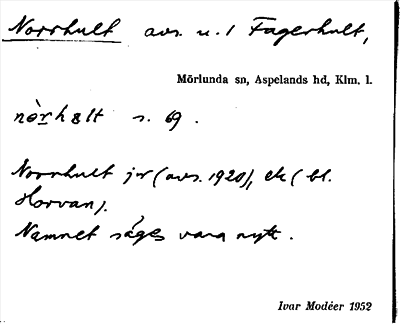 Norrhult avs. u. 1 Fagerhult,
Mörlunda sn, Aspelands hd, Klm. l.
nòrhalt s. 69.
Norrhult jr (avs. 1920), ek (bl.
Horvan).
Namnet säges vara nytt.
Ivar Modéer 1952